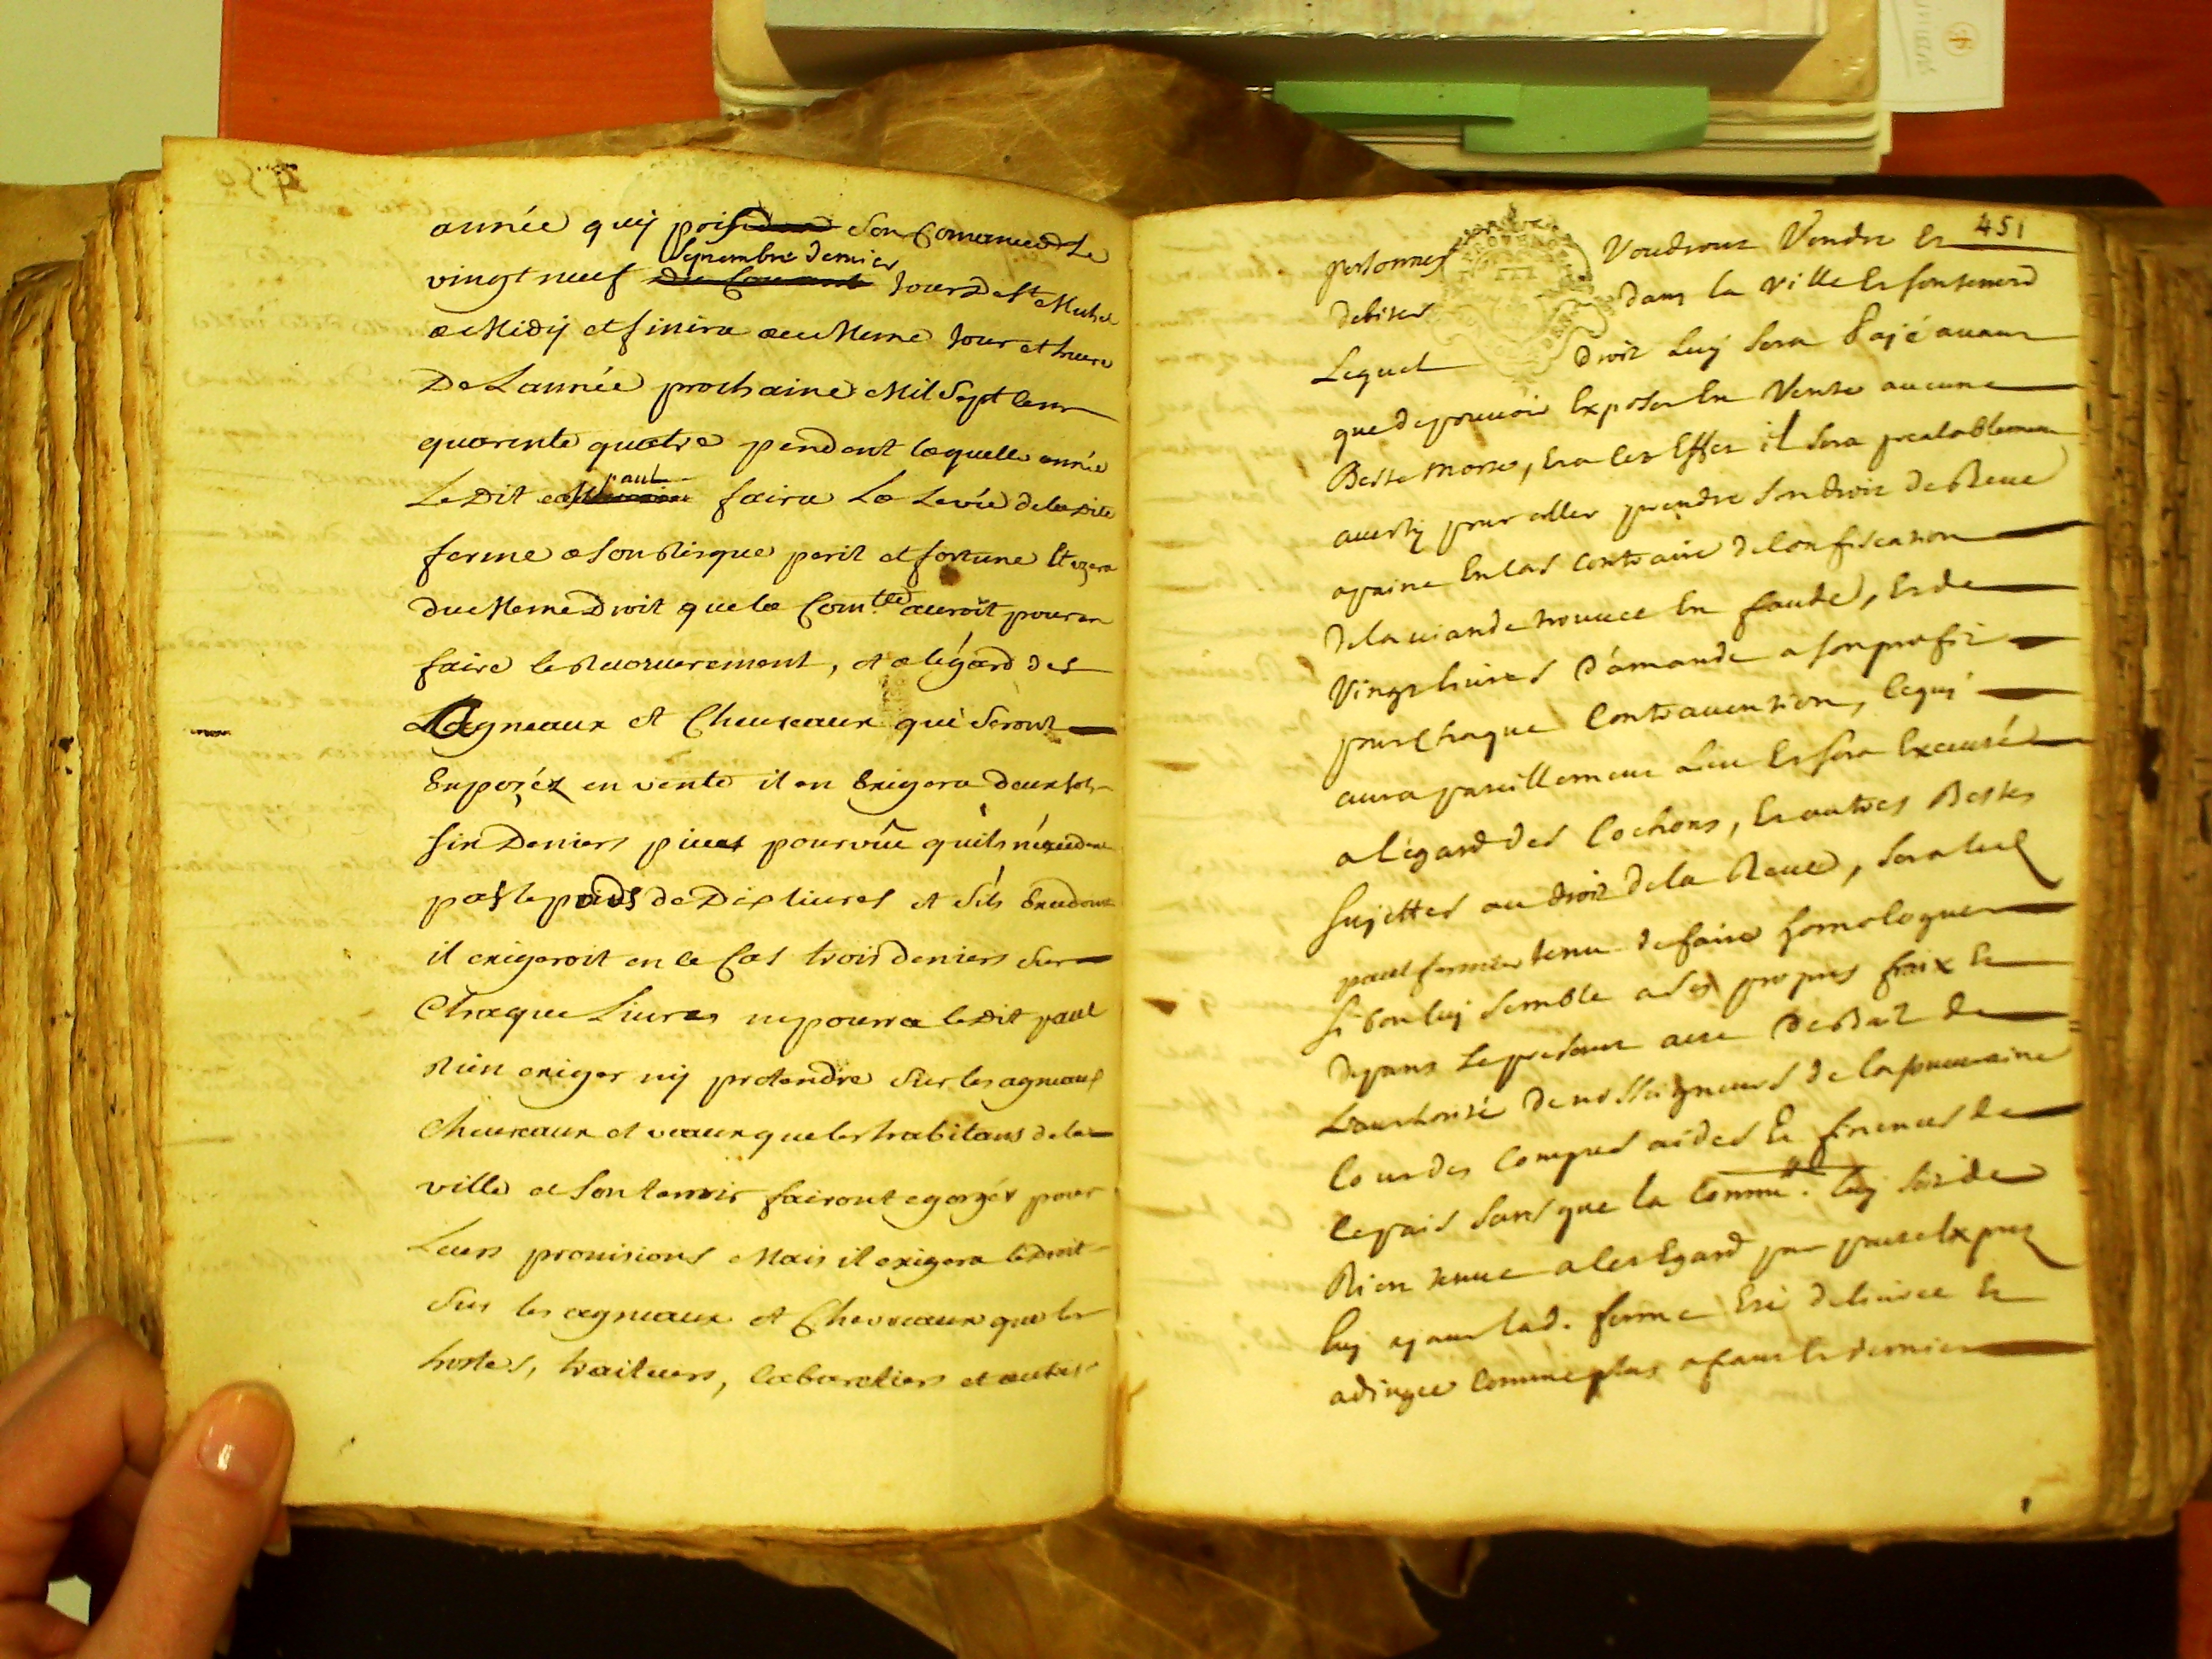 année quij pri son Comencemt Le
Septembre dernier
vingt neuf du Courant Jour de St Michel
a Midij et finira au Meme Jour et heure
De Lannée prochaine Mil Sept Cent
quarente quatre pendent laquelle année
paul
Le Dit faira La Levée de la Dite
ferme a son Risque peril et fortune Et uzera
du Meme Droit que la Com.tté auroit pour en
faire le Recouvrement, et a légard des
Agneaux et Cheureaux qui seront
Expozéz en vente il en Exigera deux sols
six Deniers piece pourvû quils néxcedent
pas le poids de Dix liures et sils Excedont
il exigeroit en ce Cas trois deniers sur
Chaque Liures ne pourra le Dit paul
Rien exiger nij pretendre sur les agneaux
Cheureaux et veaux que les habitans de la
ville et son terroir fairont egorgér pour
Leurs prouisions Mais il exigera le droit
Sur les agneaux et Chevreaux que les
hostes, traiteurs, Cabaretiers et autres
451
personnes Voudront Vendre Et
debiter dans la ville Et son terroir
Lequel droit Luy sera Payé auant
que de pouuoir Exposer En Vente aucune
Beste morte, Et a cet Effet il sera prealablement
auerty pour aller prendre son droit de Reue
a paine En Cas Contraire de Confiscation
de la uiande trouuée En fraude, Et de
Vingt liures d'amande a son profit
pour Chaque Contrauention, Ce qui
aura pareillement Lieu Et sera Executé
a l'égard des Cochons, Et autres Bestes
sujettes au droit de la Reue, sera led
paul fermier tenu de faire homologuer
si bon luy semble a ses propres fraix Et
depans Le present acte debat de
L'authorité de nosseigneurs de la souueraine
Cour des Comptes aides Et finances de
ce pais sans que la Commu.té luy soit de
Rien tenue a cet Egard par pacte Expres
luy ayant lad. ferme Esté deliurée Et
adiugée Comme plus offrant Et dernier